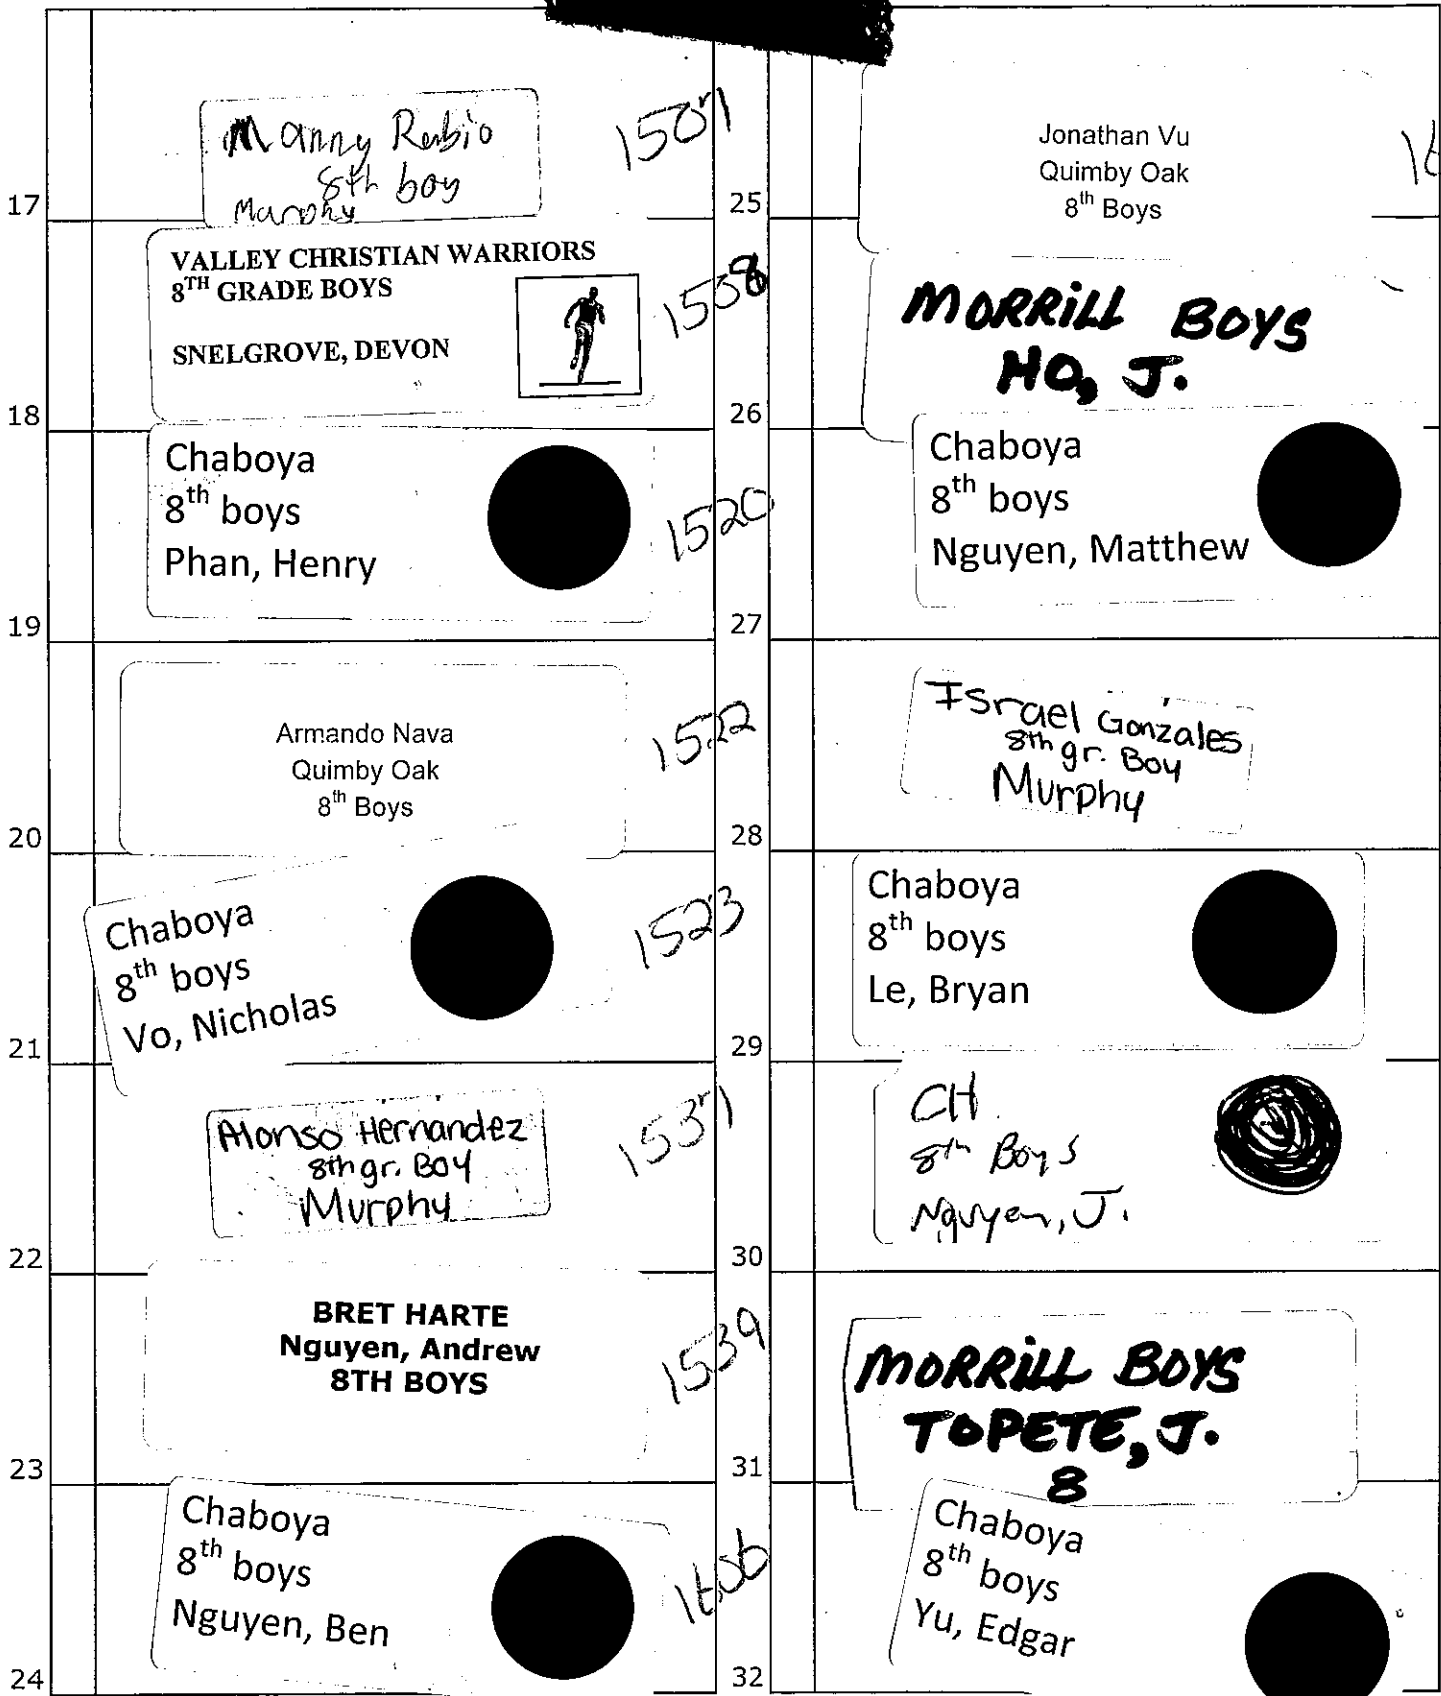 Manny Rubio
8th boy
Murphy
1501
17
VALLEY CHRISTIAN WARRIORS
8TH GRADE BOYS
SNELGROVE, DEVON
1508
18
Chaboya
8th boys
Phan, Henry
1520
19
Armando Nava
Quimby Oak
8th Boys
1522
20
Chaboya
8th boys
Vo, Nicholas
1523
21
Alonso Hernandez
8th gr. Boy
Murphy
1537
22
BRET HARTE
Nguyen, Andrew
8TH BOYS
1539
23
Chaboya
8th boys
Nguyen, Ben
1606
24
Jonathan Vu
Quimby Oak
8th Boys
25
MORRILL BOYS
HO, J.
26
Chaboya
8th boys
Nguyen, Matthew
27
Israel Gonzales
8th gr. Boy
Murphy
28
Chaboya
8th boys
Le, Bryan
29
CH
8th Boys
Nguyen, J.
30
MORRILL BOYS
TOPETE, J.
8
31
Chaboya
8th boys
Yu, Edgar
32